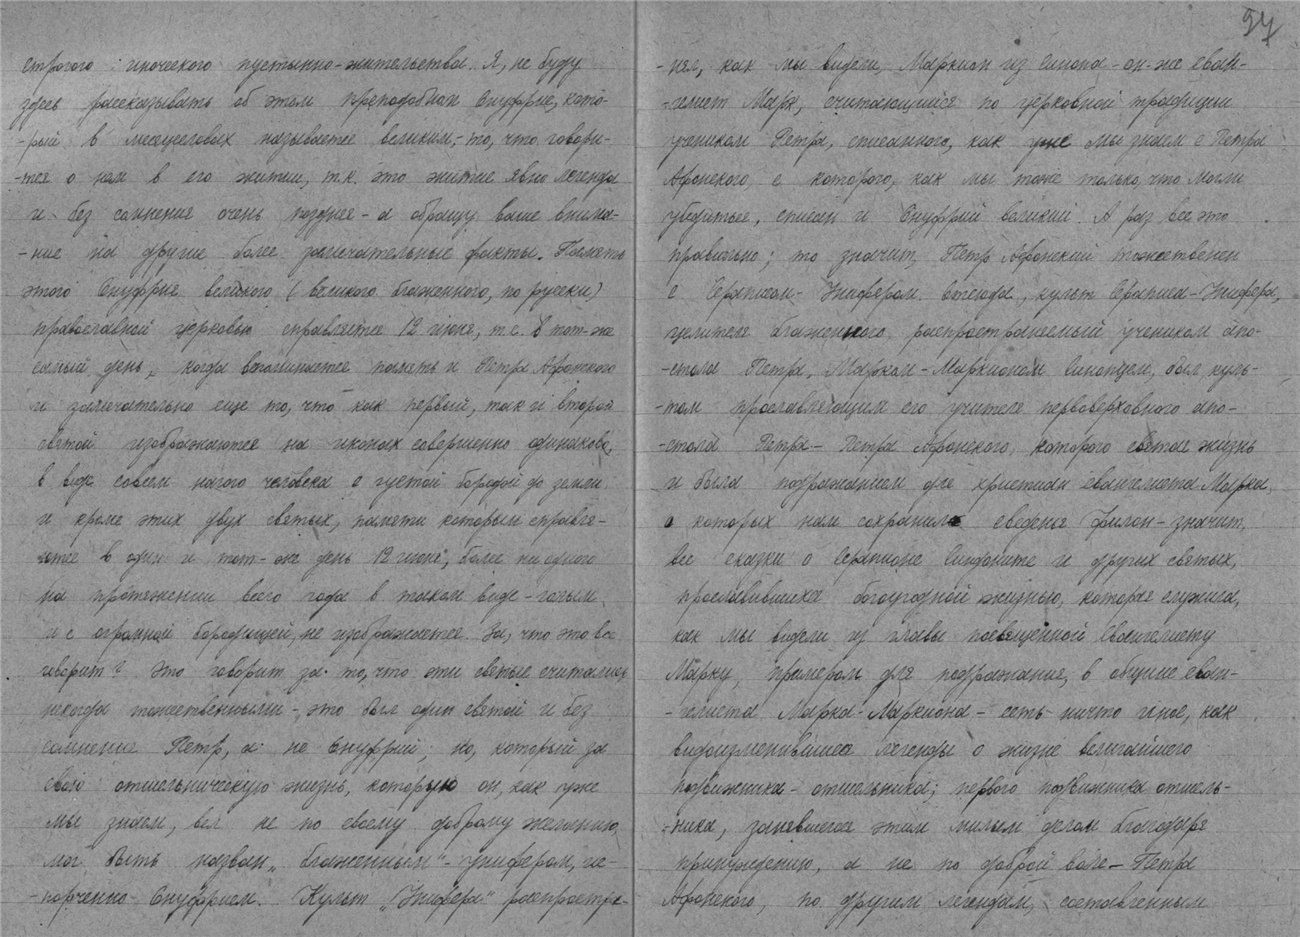 строгого иноческого пустынно-жительства. Я, не буду
здесь рассказывать об этом преподобном Онуфрие, кото-
-рый в месяцесловах называется великим, - то, что говори-
-тся о нем в его житии, т.к. это житие явно легенда
и без сомнения очень позднее - а обращу ваше внима-
-ние на другие более замечательные факты. Память
этого Онуфрия великого (великого блаженного, по русски)
православной церковью справляется 12 июня, т.е. в тот-же
самый день, когда вспоминается память и Петра Афонского
и замечательно еще то, что как первый, так и второй
святой изображаются на иконах совершенно одинаково,
в виде совсем нагого человека с густой бородой до земли
и кроме этих двух святых, памяти которым справля-
-ются в один и тот-же день 12 июня, более ни одного
на протяжении всего года в таком виде - голым
и с огромной бородищей, не изображается. За, что это все
говорит? Это говорит за то, что эти святые считались
некогда тожественными -, это был один святой и без
сомнения Петр, а не Онуфрий; но, который за
свою отшельническую жизнь, которую он, как уже
мы знаем, вел не по своему доброму желанию,
мог быть назван „блаженным" - унифером, ис-
-порченно Онуфрием. Культ „Унифера" распростра-
97
-нял, как мы видели, Маркион из Синопа - он-же еван-
-гелист Марк, считающийся по церковной традиции
учеником Петра, списанного, как уже мы знаем с Петра
Афонского, с которого, как мы тоже только, что могли
убедиться, списан и Онуфрий великий. А раз все это
правильно; то значит, Петр Афонский тожественен
с Серапием - Унифером. Отсюда, культ Сераписа - Унифера,
целителя блаженного распространяемый учеником апо-
-стола Петра, Марком - Маркионом синопцем, был куль-
-том прославляющим его учителя первоверховного апо-
-стола Петра - Петра Афонского, которого святая жизнь
и была подражанием для христиан евангелиста Марка,
о которых нам сохранил сведенья Филон - значит,
все сказки о Серапионе Синдоните и других святых,
прославившихся богоугодной жизнью, которая служила,
как мы видели из главы посвященной Евангелисту
Марку, примером для подражания, в общине еван-
-гелиста Марка - Маркиона - есть ничто иное, как
видоизменившиеся легенды о жизни величайшего
подвижника - отшельника; первого подвижника отшель-
-ника, занявшегося этим милым делом благодаря
принуждению, а не по доброй воле - Петра
Афонского, по другим легендам, составленным